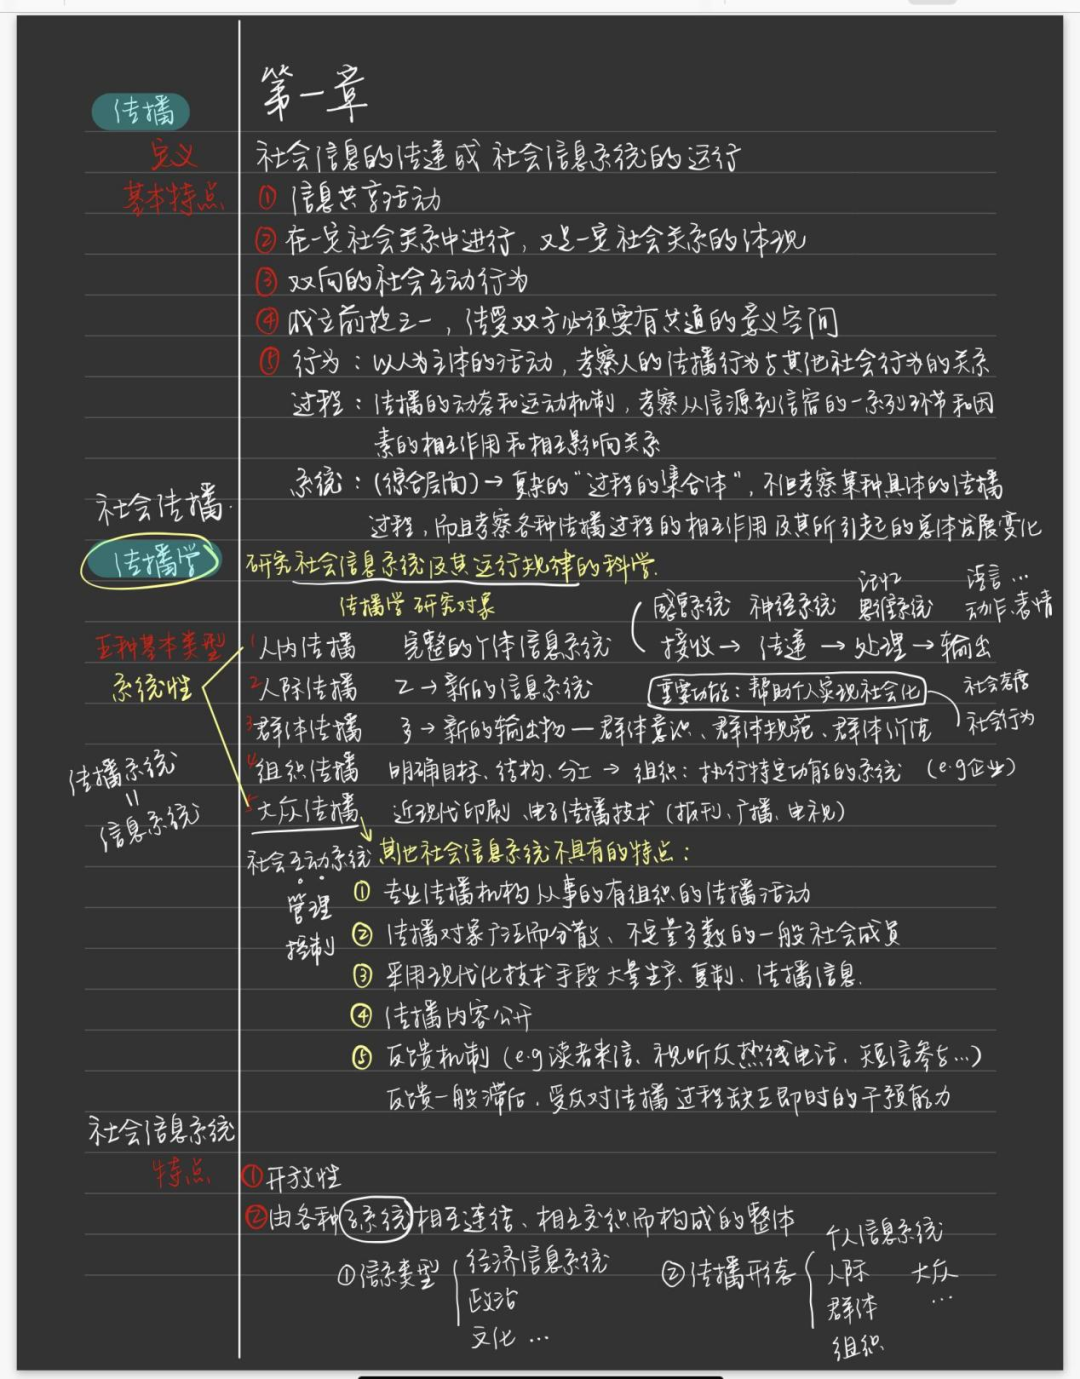 第一章
传播
定义 社会信息的传递或社会信息系统的运行
基本特点 ① 信息共享活动
② 在一定社会关系中进行，又是一定社会关系的体现
③ 双向的社会互动行为
④ 成立前提之一，传受双方必须要有共通的意义空间
⑤ 行为：以人为主体的活动，考察人的传播行为与其他社会行为的关系
过程：传播的动态和运动机制，考察从信源到信宿的一系列环节和因
素的相互作用和相互影响关系
系统：(综合层面)→复杂的“过程的集合体”，不但考察某种具体的传播
社会传播
过程，而且考察各种传播过程的相互作用及其所引起的总体发展变化
传播学 研究社会信息系统及其运行规律的科学.
传播学研究对象
记忆 语言…
感官系统 神经系统 思维系统 动作、表情
五种基本类型 1 人内传播 完整的个体信息系统 接收→传递→处理→输出
系统性 2 人际传播 2→新的信息系统 重要功能：帮助个人实现社会化 社会态度
社会行为
3 群体传播 多→新的输出物—群体意识、群体规范、群体价值
传播系统
=
信息系统
4 组织传播 明确目标、结构、分工→组织：执行特定功能的系统 (e.g企业)
5 大众传播 近现代印刷、电子传播技术 (报刊、广播、电视)
社会互动系统 其他社会信息系统不具有的特点：
管理
控制
① 专业传播机构从事的有组织的传播活动
② 传播对象广泛而分散、不定量多数的一般社会成员
③ 采用现代化技术手段大量生产、复制、传播信息.
④ 传播内容公开
⑤ 反馈机制 (e.g读者来信、视听众热线电话、短信参与…)
反馈一般滞后，受众对传播过程缺乏即时的干预能力
社会信息系统
特点 ①开放性
②由各种子系统相互连结、相互交织而构成的整体
①信系类型 经济信息系统
政治
文化 …
②传播形态 个人信息系统
人际 大众
群体 …
组织